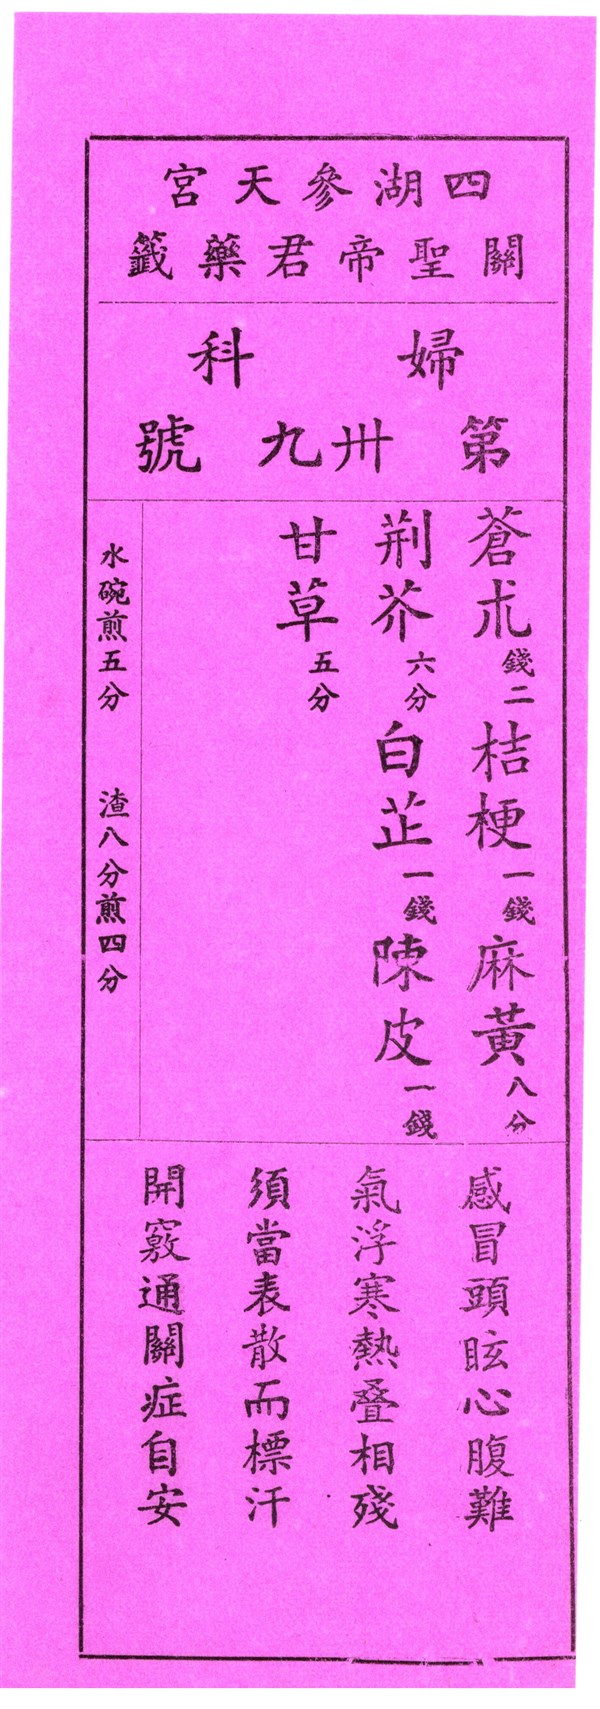 四湖參天宮
關聖帝君藥籤
婦科
第卅九號
蒼朮錢二桔梗一錢麻黃八分
荊芥六分白芷一錢陳皮一錢
甘草五分
水碗煎五分 渣八分煎四分
感冒頭眩心腹難
氣浮寒熱叠相殘
須當表散而標汗
開竅通關症自安